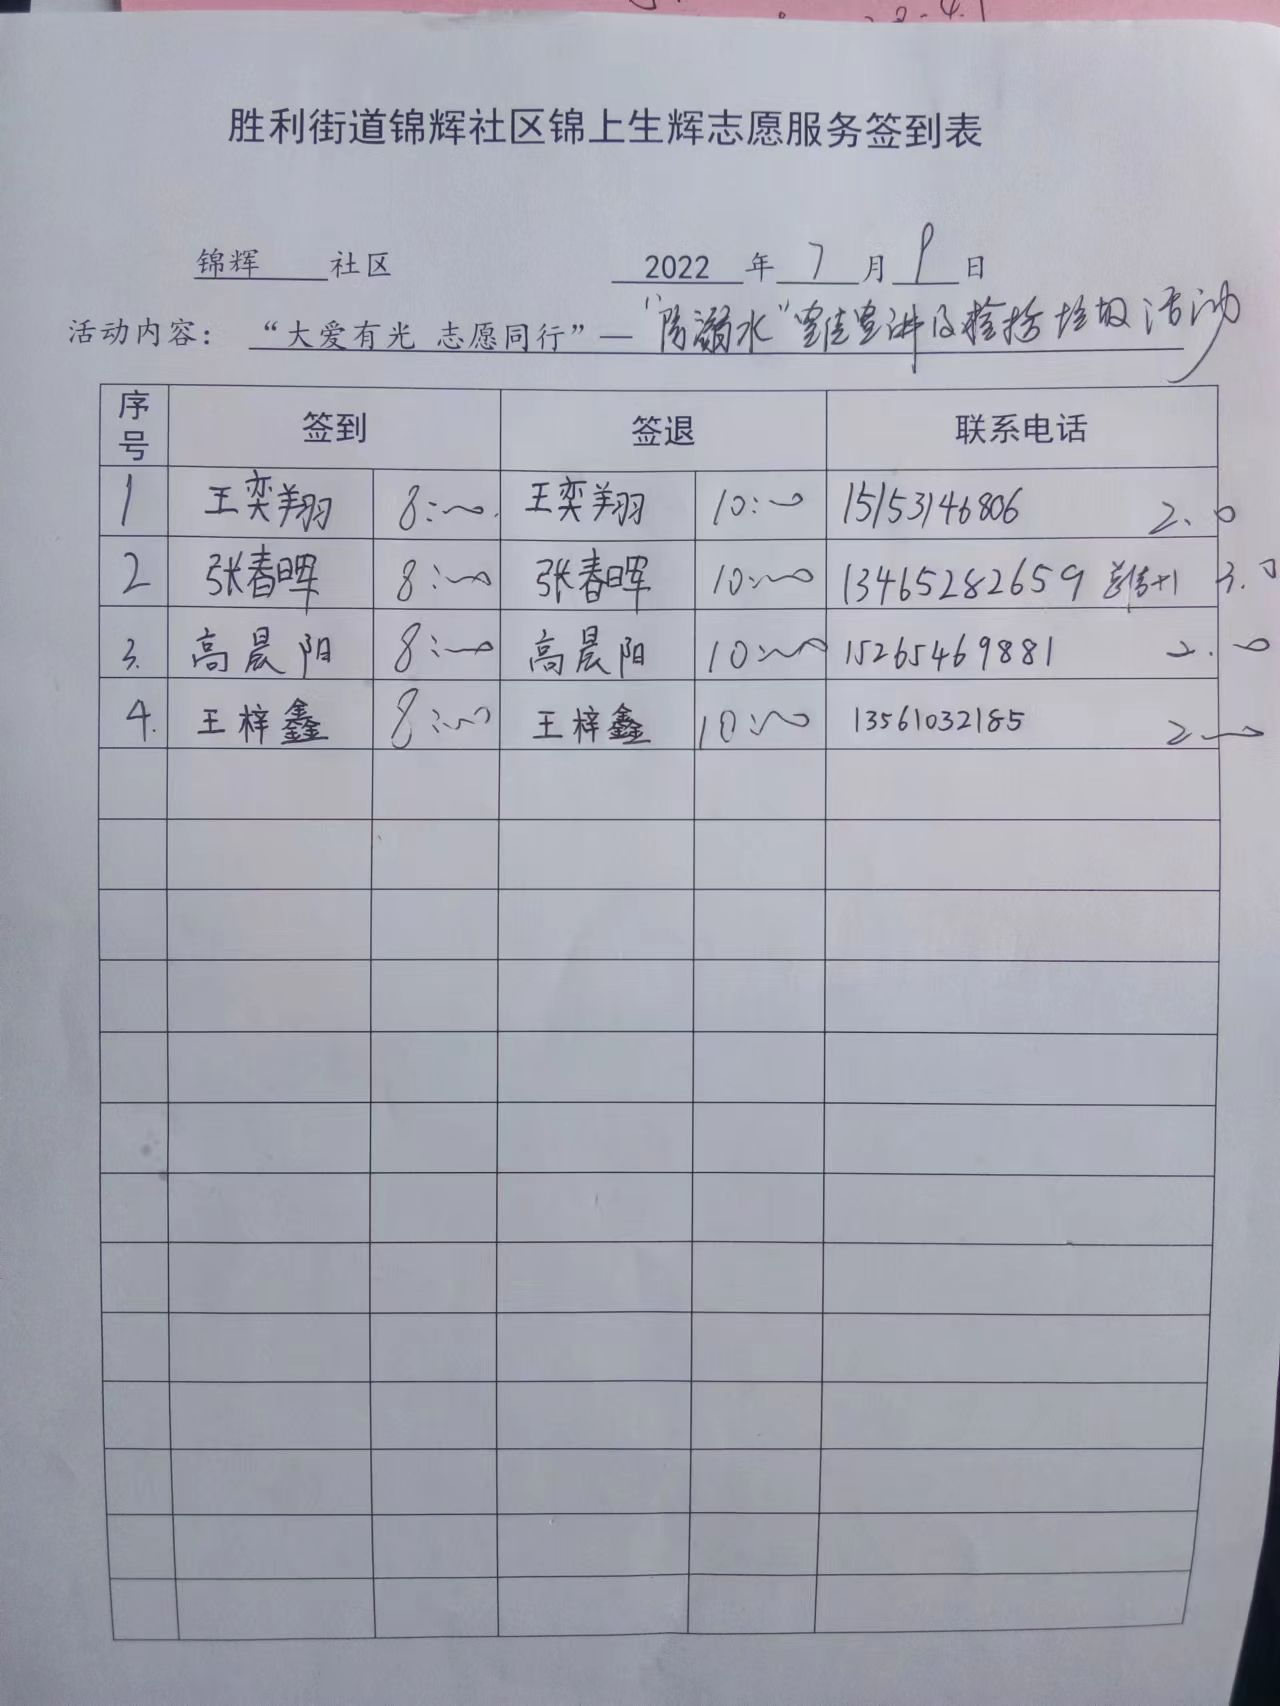 胜利街道锦辉社区锦上生辉志愿服务签到表
锦辉 社区 2022 年 7 月 9 日
活动内容： “大爱有光 志愿同行”— “防溺水” 宣讲及捡拾垃圾活动
序号 签到 签退 联系电话
1 王奕翔 8:00 王奕翔 10:00 15153146806 2.0
2 张春晖 8:00 张春晖 10:00 13465282659 +1 3.0
3. 高晨阳 8:00 高晨阳 10:00 15265469881 2.0
4. 王梓鑫 8:00 王梓鑫 10:00 13561032185 2.0